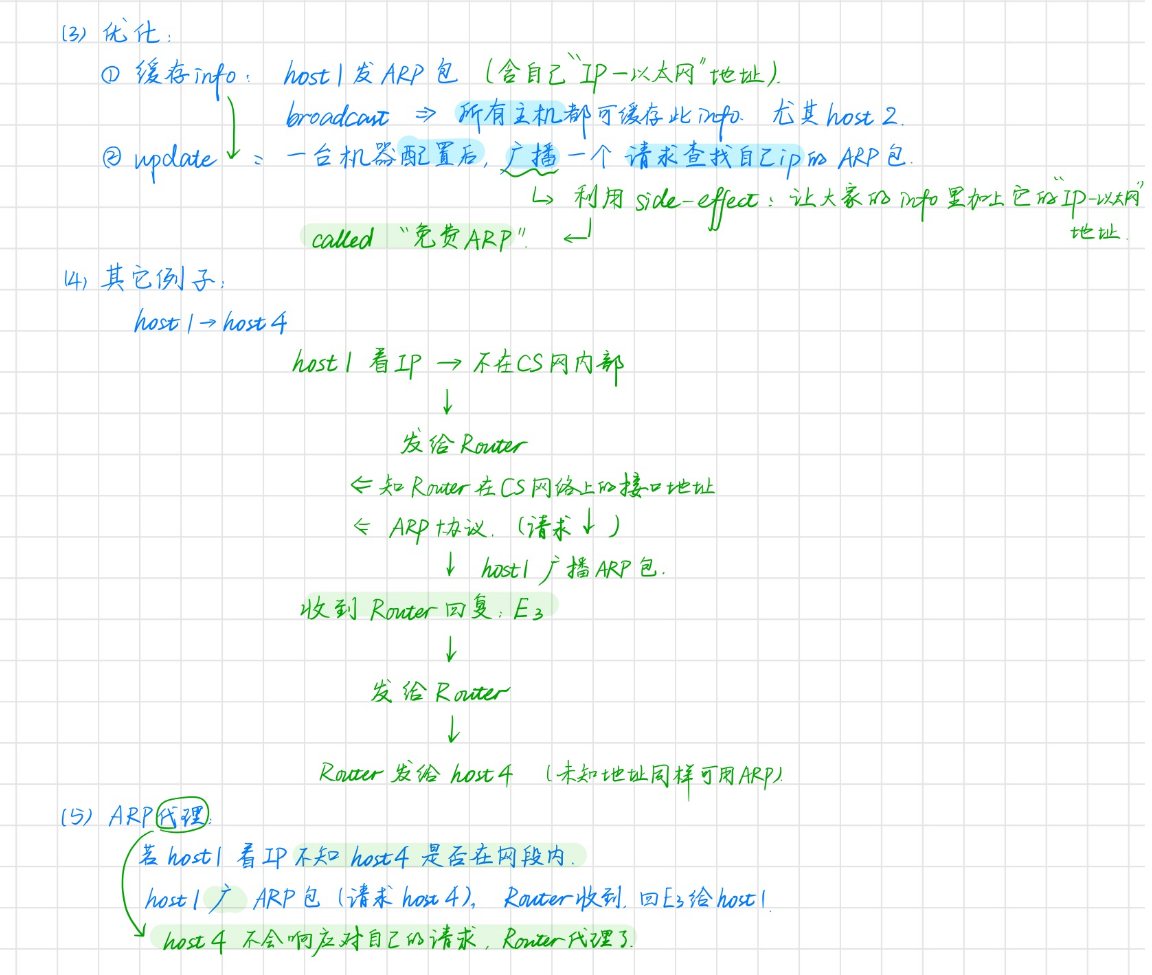 (3) 优化:
① 缓存info: host 1 发 ARP 包 (含自己“IP-以太网”地址).
broadcast ⇒ 所有主机都可缓存此info. 尤其host 2.
② update: 一台机器配置后, 广播一个 请求查找自己ip的 ARP 包.
↳ 利用 side-effect: 让大家的info里加上它的“IP-以太网”
地址.
called “免费ARP”. ←
(4) 其它例子:
host 1 → host 4
host 1 看IP → 不在CS网内部
↓
发给 Router
⇐ 知 Router 在CS网络上的接口地址
⇐ ARP协议. (请求↓)
↓ host1 广播ARP包.
收到 Router 回复: E3
↓
发给 Router
↓
Router 发给 host 4 (未知地址同样可用ARP)
(5) ARP代理:
若 host 1 看 IP 不知 host 4 是否在网段内.
host 1 广 ARP 包 (请求 host 4), Router收到. 回E3给host1.
host 4 不会响应对自己的请求, Router代理了.